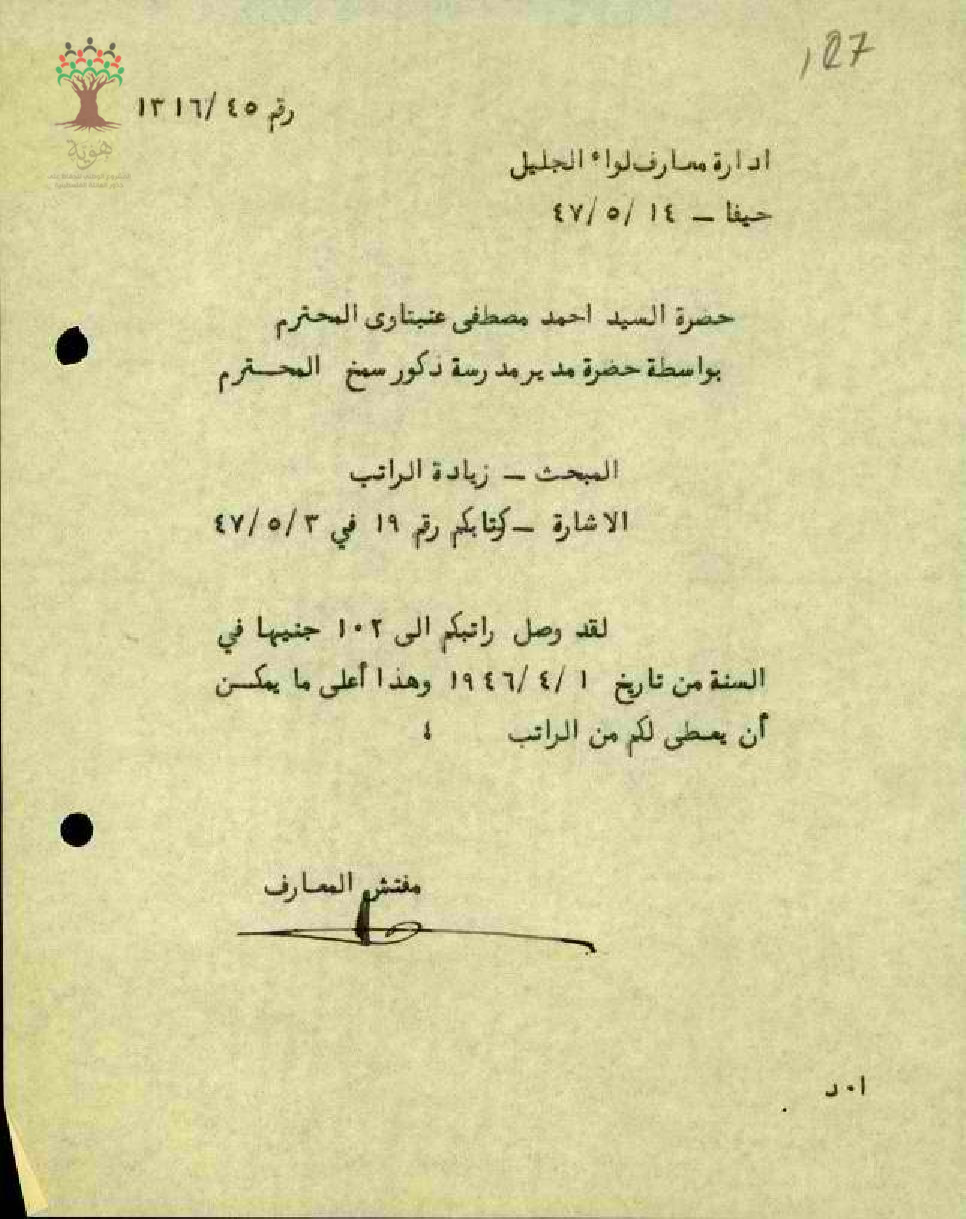 127
هوية
رقم ١٣١٦/٤٥
ادارة معارف لواء الجليل
حيفا – ٤٧/٥/١٤
حضرة السيد احمد مصطفى عنبتاوى المحترم
بواسطة حضرة مدير مدرسة ذكور سمخ المحــترم
المبحث – زيادة الراتب
الاشارة – كتابكم رقم ١٩ في ٤٧/٥/٣
لقد وصل راتبكم الى ١٠٢ جنيها في
السنة من تاريخ ١٩٤٦/٤/١ وهذا أعلى ما يمكــن
أن يعطى لكم من الراتب ٤
مفتش المعارف
ا٠د